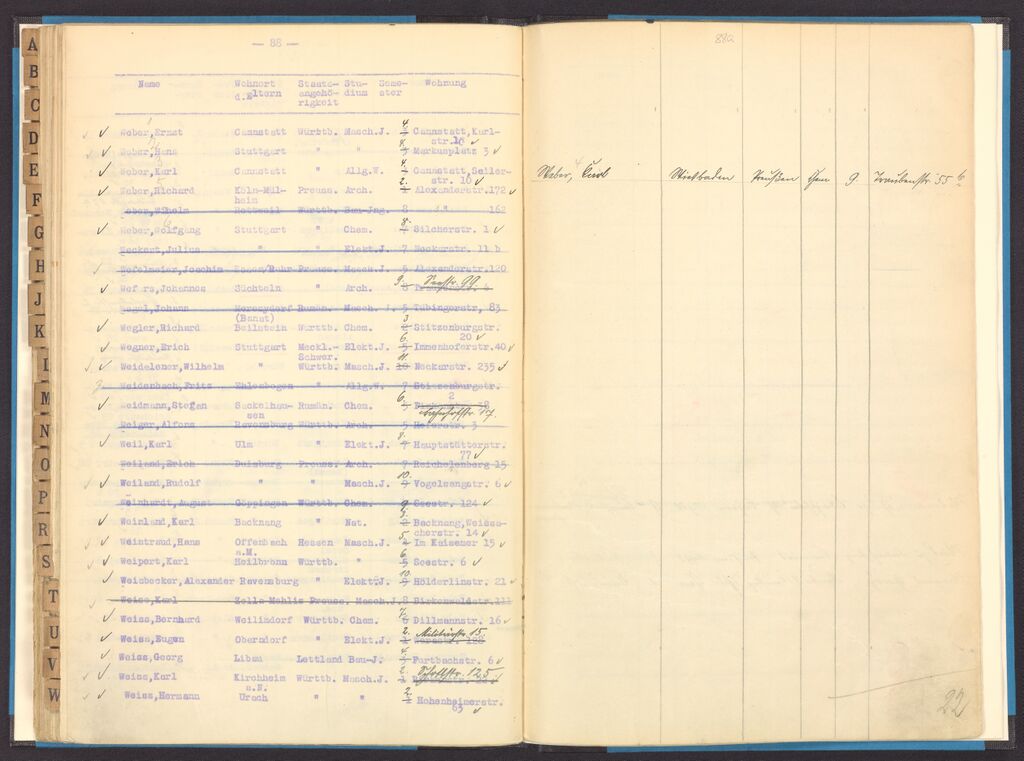 A
B
C
D
E
F
G
H
J
K
L
M
N
O
P
R
S
T
U
V
W
— 88 —
Name Wohnort d.Eltern Staatsangehörigkeit Studium Semester Wohnung
Weber,Ernst Cannstatt Württb. Masch.J. 4 Cannstatt,Karl-
str.
Weber,Hans Stuttgart " " Markusplatz 3
Weber,Karl " " Allg.W. 4. Cannstatt,Seiler-
str. 16
Weber,Richard Köln-Mül- Preuss. Arch. 2. Alexanderstr.172
heim
Weber,Wilhelm Rottweil Württb. Bau-Jng. 8 " 162
Weber,Wolfgang Stuttgart " Chem. 8. Silcherstr. 1
Weckert,Julius " " Elekt.J. 7 Neckarstr. 11 b
Wefelmeier,Joachim Essen/Ruhr Preuss. Masch.J. 5 Alexanderstr.120
Wefers,Johannes Süchteln " Arch. 9. Seestr. 99
Wegel,Johann Hereszdorf Rumän. Masch. J. 5 Tübingerstr. 83
(Banat)
Wegler,Richard Beilstein Württb. Chem. 3 Stitzenburgstr.
20
Wegner,Erich Stuttgart Meckl.- Elekt.J. 6. Immenhoferstr.40
Schwer.
Weidelener,Wilhelm " Württb. Masch.J. 11. Neckarstr. 235
Weidenbach,Fritz Ehlenbogen " Allg.W. 7 Stitzenburgstr.
2
Weidmann,Stefan Sackelhau- Rumän. Chem. 6.
sen
Weiger,Alfons Ravensburg Württb. Arch. 5 3
Weil,Karl Ulm " Elekt.J. 8. Hauptstätterstr.
77
Weiland,Erich Duisburg Preuss. Arch. 7 Reichelenberg 15
Weiland,Rudolf " " Masch.J. 10. Vogelsangstr. 6
Weinhardt,August Göppingen Württb. Chem. 9 Seestr. 124
Weinland,Karl Backnang " Nat. 3. Backnang,Weissa-
cherstr. 14
Weintraud,Hans Offenbach Hessen Masch.J. 5. Im Kaisemer 15
a.M.
Weipert,Karl Heilbronn Württb. " 6 Seestr. 6
Weisbecker,Alexander Ravensburg " Elekt.J. 10. Hölderlinstr. 21
Weise,Karl Zella-Mehlis Preuss. Masch.J. 8 Birkenwaldstr.111
Weiss,Bernhard Weilimdorf Württb. Chem. 7. Dillmannstr. 16
Weiss,Eugen Oberndorf " Elekt.J. 2. Militärstr. 15.
Weiss,Georg Libau Lettland Bau-J. 4 Furtbachstr. 6
Weiss,Karl Kirchheim Württb. Masch.J. 2. 125
a.N.
Weiss,Hermann Urach " " 2. Hohenheimerstr.
63
88a
Weber, Curt Wiesbaden Preußen Chem 9 Traubenstr 55
22